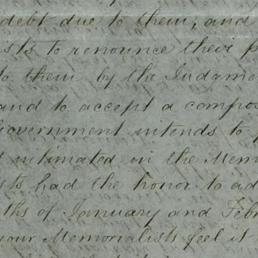 debt due to them, and
sts to renounce their p
to them by the Judgme
and to accept a compos
Government intends to p
intimated in the Mem
sts had the honor to ad
ths of January and Febr
your Memorialists feel it